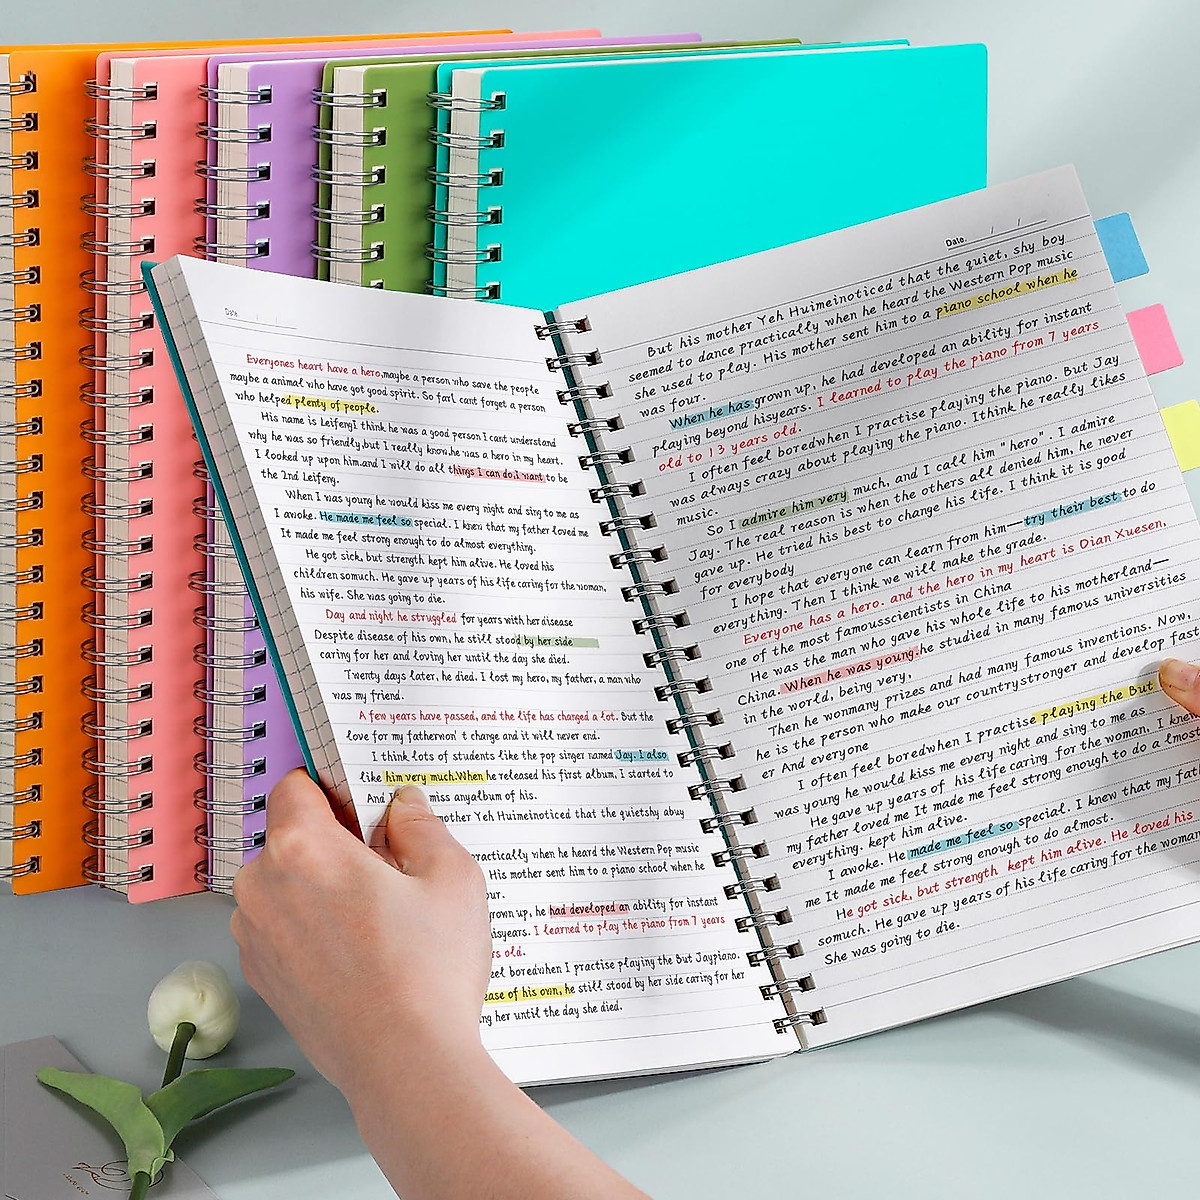 Date.
Everyones heart have a hero,maybe a person who save the people
maybe a animal who have got good spirit. So farI cant forget a person
who helped plenty of people.
His name is LeifengI think he was a good person I cant understand
why he was so friendly,but I really know.he was a hero in my heart.
I looked up upon him.and I will do all things I can do,I want to be
the 2nd Leifeng.
When I was young he would kiss me every night and sing to me as
I awoke. He made me feel so special. I knew that my father loved me
It made me feel strong enough to do almost everything.
He got sick, but strength kept him alive. He loved his
children somuch. He gave up years of his life caring for the woman,
his wife. She was going to die.
Day and night he struggled for years with her disease
Despite disease of his own, he still stood by her side
caring for her and loving her until the day she died.
Twenty days later, he died. I lost my hero, my father, a man who
was my friend.
A few years have passed, and the life has changed a lot. But the
love for my fatherwon' t change and it will never end.
I think lots of students like the pop singer named Jay. I also
like him very much.When he released his first album, I started to
And I miss anyalbum of his.
mother Yeh Huimeinoticed that the quietshy abuy
ractically when he heard the Western Pop music
His mother sent him to a piano school when he
our.
grown up, he had developed an ability for instant
hisyears. I learned to play the piano from 7 years
rs old.
eel boredwhen I practise playing the But Jaypiano.
ease of his own, he still stood by her side caring for her
ng her until the day she died.
Date. / /
But his mother Yeh Huimeinoticed that the quiet, shy boy
seemed to dance practically when he heard the Western Pop music
she used to play. His mother sent him to a piano school when he
was four.
When he has grown up, he had developed an ability for instant
playing beyond hisyears. I learned to play the piano from 7 years
old to 13 years old.
I often feel boredwhen I practise playing the piano. But Jay
was always crazy about playing the piano. Ithink he really likes
music.
So I admire him very much, and I call him "hero". I admire
Jay. The real reason is when the others all denied him, he never
gave up. He tried his best to change his life. I think it is good
for everybody
I hope that everyone can learn from him—try their best to do
everything. Then I think we will make the grade.
Everyone has a hero. and the hero in my heart is Qian Xuesen,
one of the most famousscientists in China
He was the man who gave his whole life to his motherland—
China. When he was young.he studied in many famous universities
in the world, being very,
Then he wonmany prizes and had many famous inventions. Now,
he is the person who make our countrystronger and develop fast
er And everyone
I often feel boredwhen I practise playing the But
was young he would kiss me every night and sing to me as
He gave up years of his life caring for the woman. I knew
my father loved me It made me feel strong enough to do a lmost
everything. kept him alive.
I awoke. He made me feel so special. I knew that my fath
me It made me feel strong enough to do almost.
He got sick, but strength kept him alive. He loved his
somuch. He gave up years of his life caring for the woman
She was going to die.